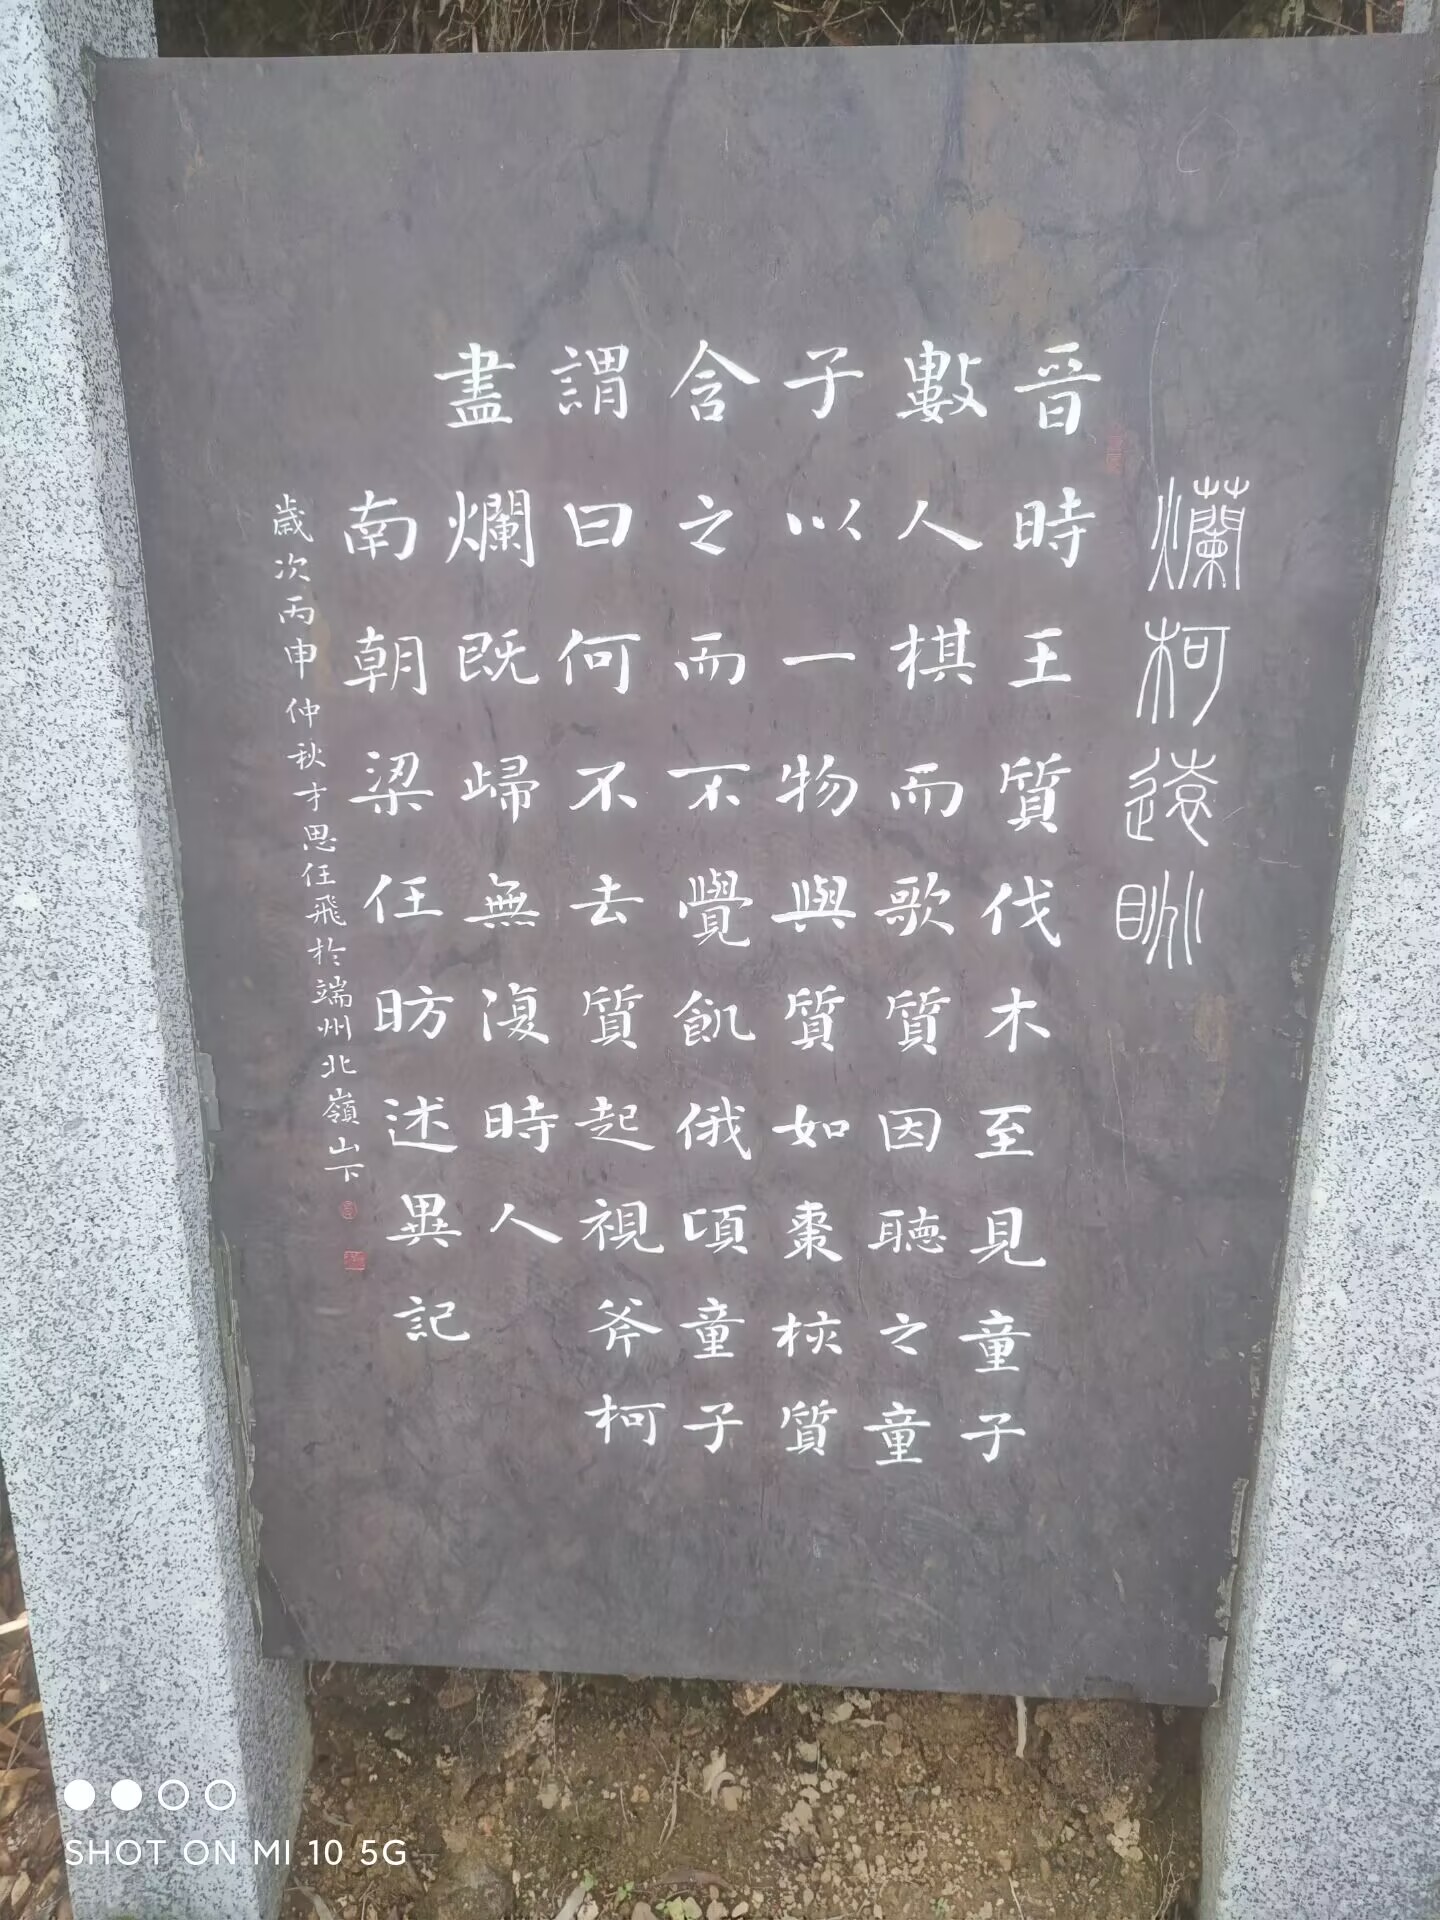 爛柯遠眺
晋時王質伐木至見童子
數人棋而歌質因聽之童
子以一物與質如棗核質
含之而不覺飢俄頃童子
謂曰何不去質起視斧柯
盡爛既歸無復時人
南朝梁任昉述異記
歲次丙申仲秋才思任飛於端州北嶺山下
SHOT ON MI 10 5G